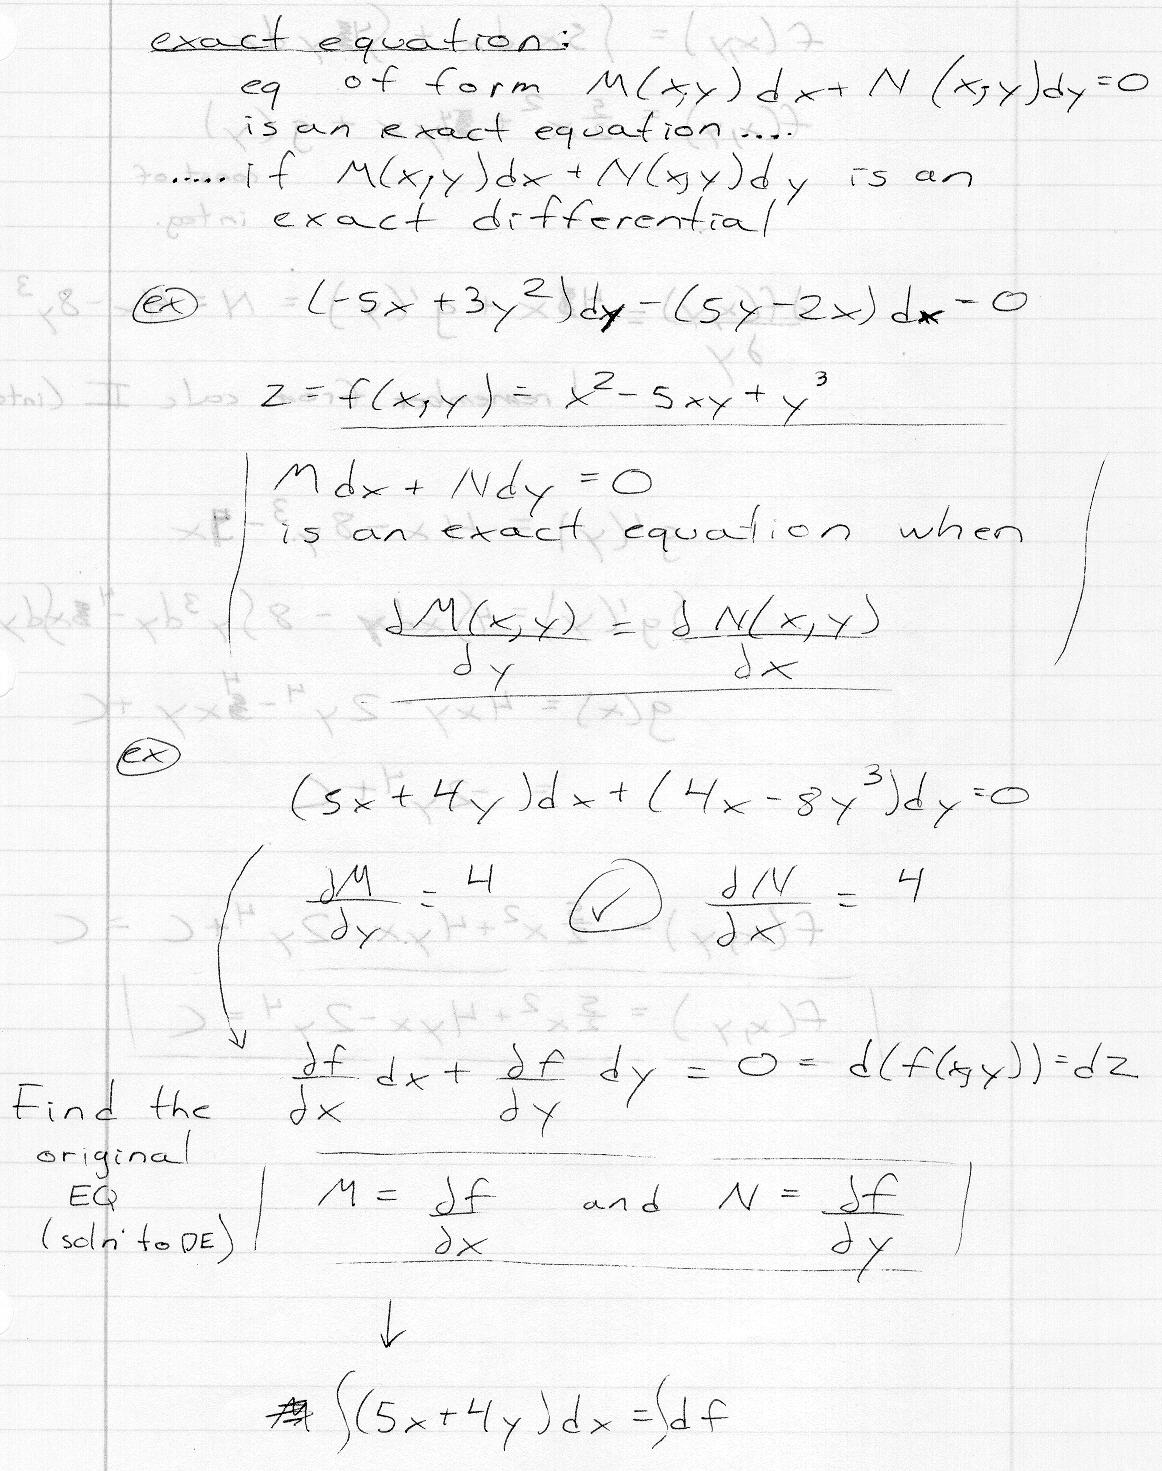 exact equation:
eq of form M(x,y)dx + N(x,y)dy = 0
is an exact equation....
.....if M(x,y)dx + N(x,y)dy is an
exact differential
ex (-5x + 3y²)dy - (5y - 2x)dx = 0
z = f(x,y) = x² - 5xy + y³
Mdx + Ndy = 0
is an exact equation when
∂M(x,y)/∂y = ∂N(x,y)/∂x
ex
(5x + 4y)dx + (4x - 8y³)dy = 0
∂M/∂y = 4 ✓ ∂N/∂x = 4
∂f/∂x dx + ∂f/∂y dy = 0 = d(f(x,y)) = dz
Find the
original
EQ
(soln' to DE)
M = ∂f/∂x and N = ∂f/∂y
↓
∫(5x + 4y)dx = ∫df